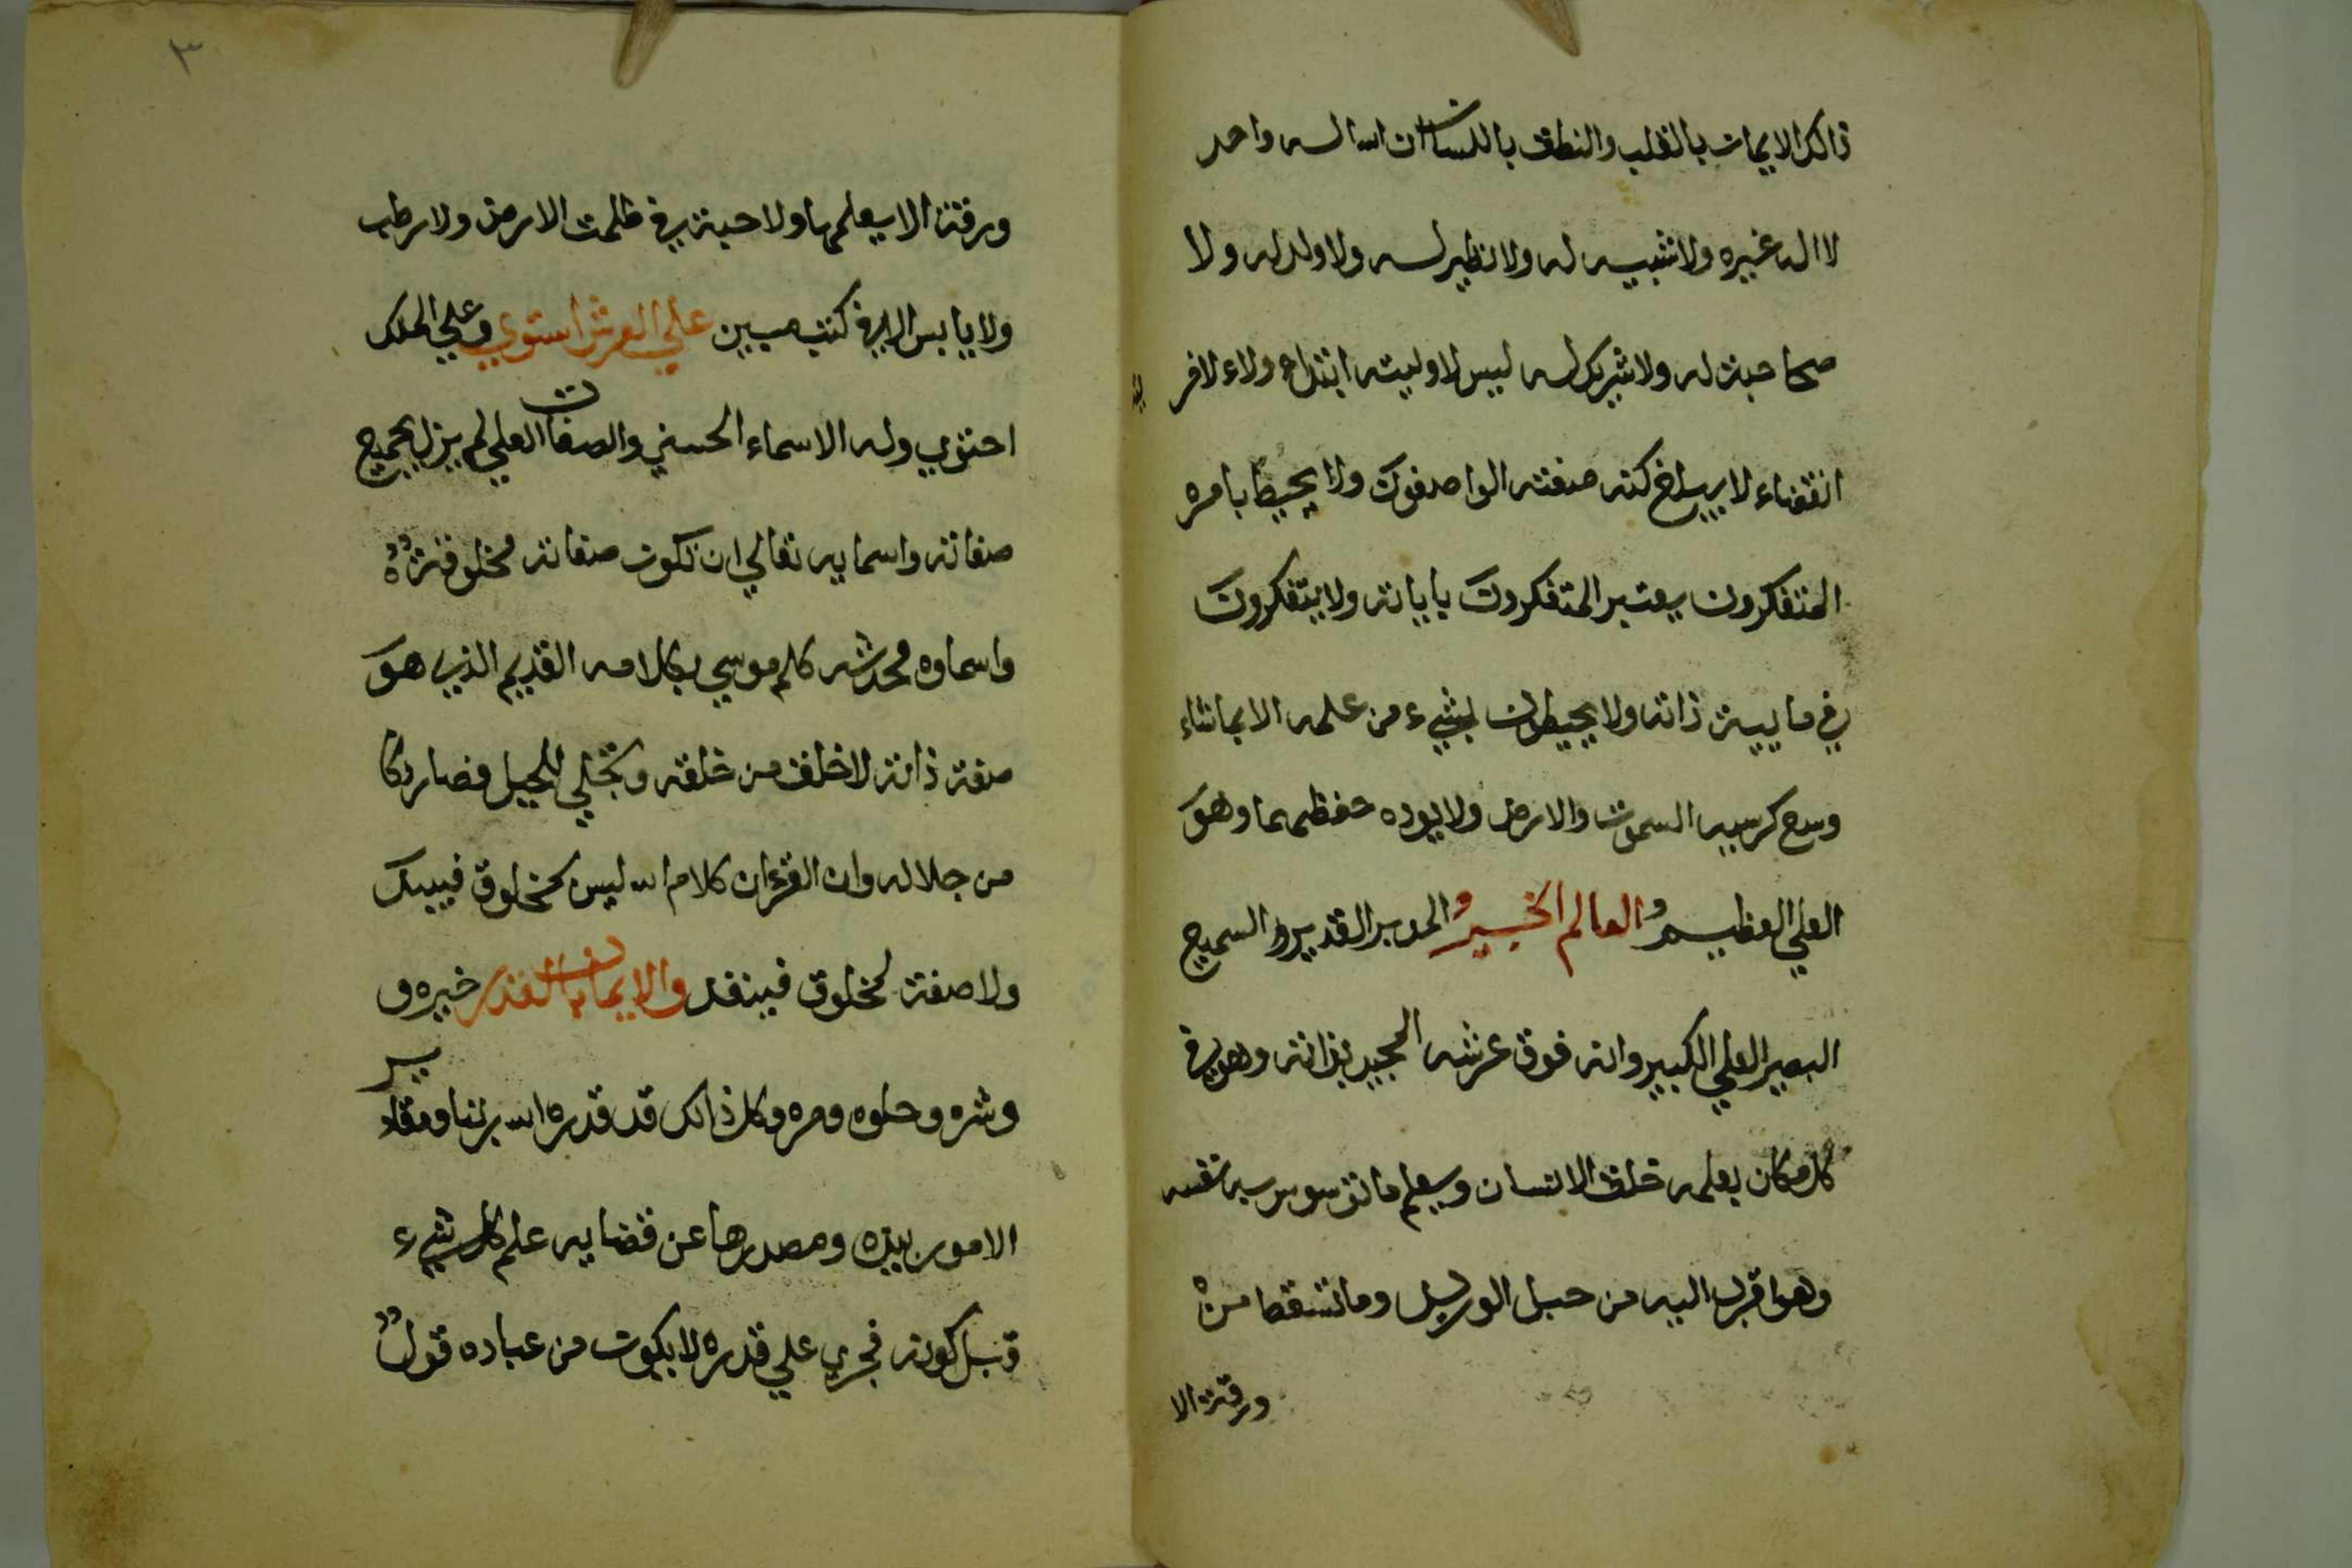 ذالك الايمان بالقلب والنطق باللسان ان الله اله واحد
لا اله غيره ولا شبيه له ولا نظير له ولا ولد له ولا
صحاحبة له ولا شريك له ليس لاوليته ابتداء ولا ءلاخر
يته
انقضاء لا يبلغ كنه صفته الواصفون ولا يحيط بامره
المتفكرون يعتبر المتفكرون باياته ولا يتفكرون
في ماييية ذاته ولا يحيطون بشيء من علمه الا بما شاء
وسع كرسيه السموت والارض ولا يوده حفظهما وهو
العلي العظيم و العالم الخبير و المدبر القدير و السميع
البصير العلي الكبير وانه فوق عرشه المجيد بذاته وهو في
كل مكان بعلمه خلق الانسان ويعلم ما توسوس به نفسه
وهو اقرب اليه من حبل الوريد وما تسقط من
ورقة الا
٣
ورقة الا يعلمها ولا حبة في ظلمت الارض ولا رطب
ولا يابس الا في كتب مبين علي العرش استوي وعلي الملك
احتوي وله الاسماء الحسني والصفات العلي لم يزل بجميع
صفاته واسمايه تعالي ان تكون صفاته مخلوقة
واسماوه محدثه كلم موسي بكلامه القديم الذي هو
صفة ذاته لا خلق من خلقه وتجلي للجبل فصار دكا
من جلاله وان القرءان كلام الله ليس بمخلوق فيبيد
ولا صفة لمخلوق فينفد والايمان بالقدر خيره و
وشره وحلوه ومره وكل ذالك قد قدره الله ربنا ومقادير
الامور بيده ومصدرها عن قضايه علم كل شيء
قبل كونه فجري علي قدره لا يكون من عباده قول